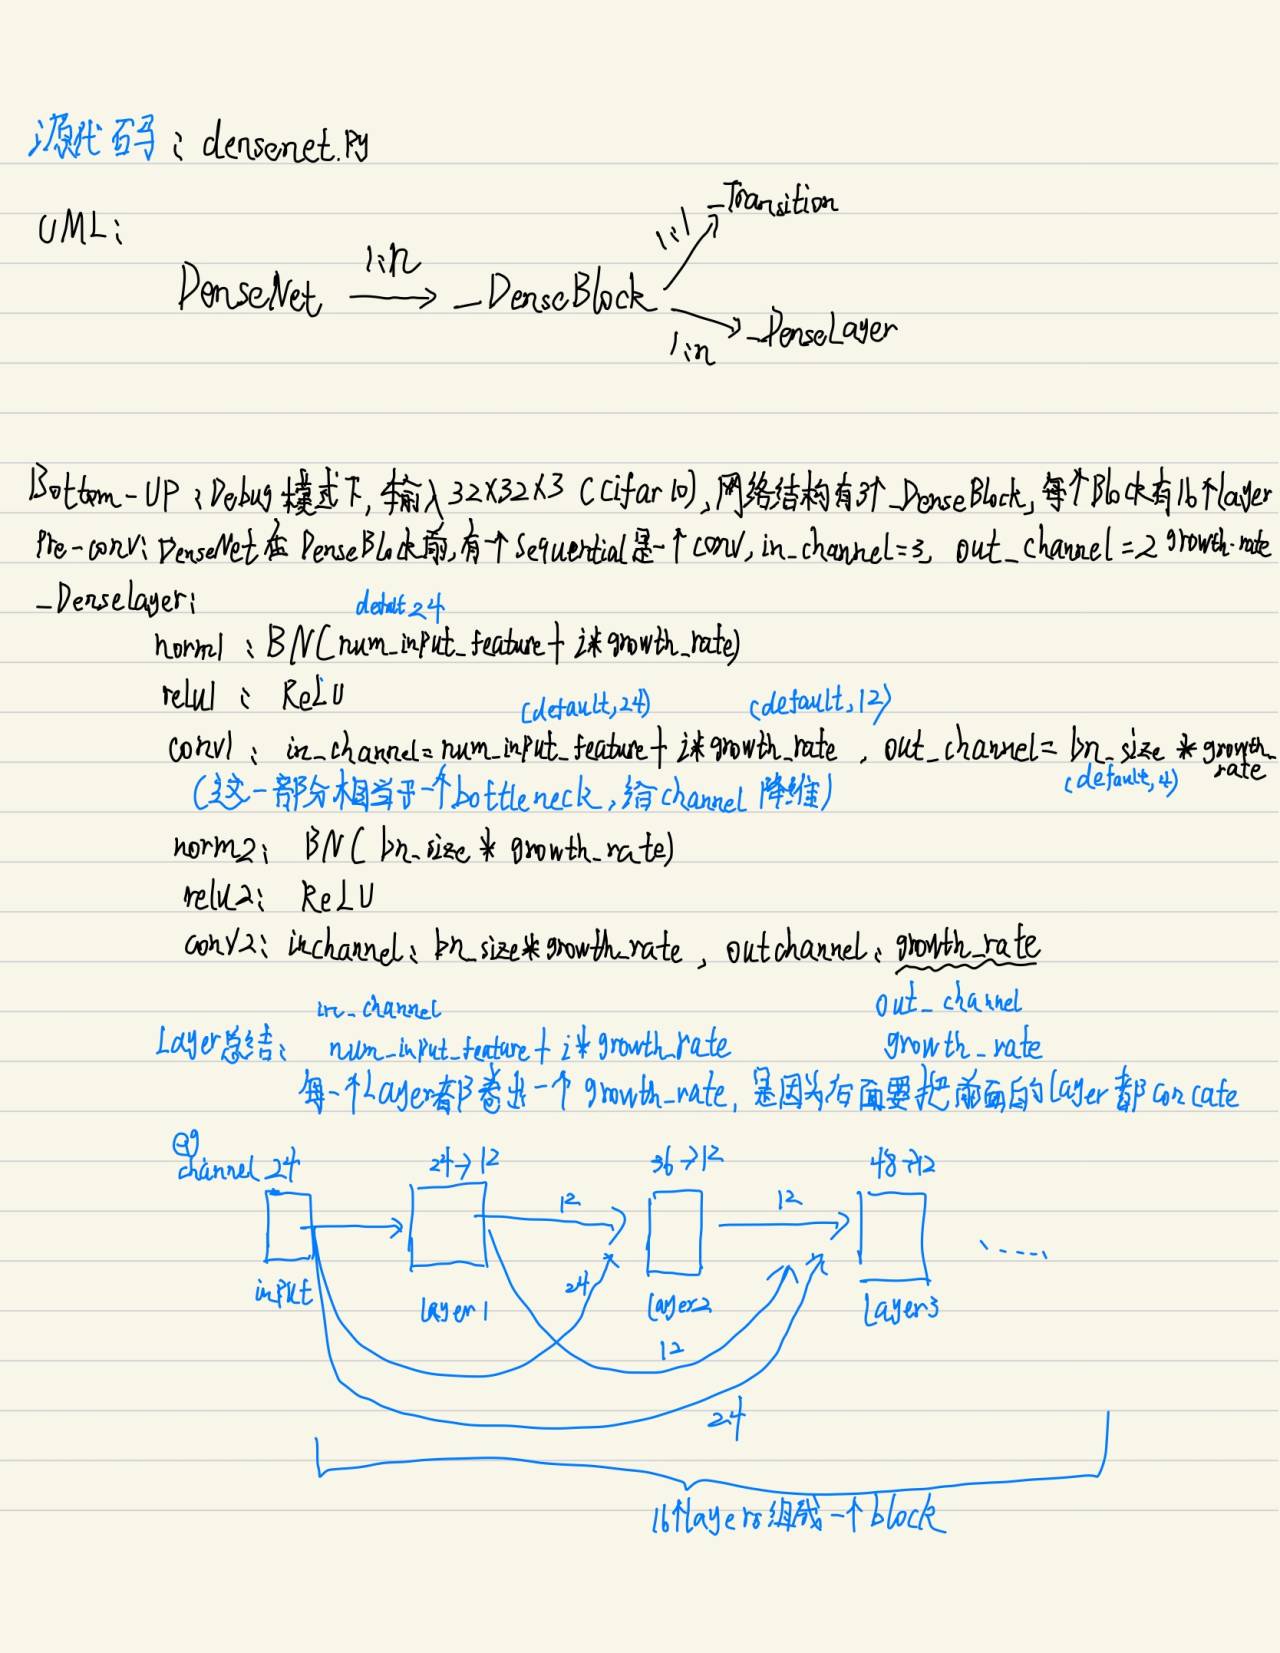 源代码：densenet.py
UML：
DenseNet 1:n _DenseBlock 1:1 _Transition
1:n _DenseLayer
Bottom-UP：Debug模式下, 输入32X32X3 (Cifar10), 网络结构有3个_DenseBlock, 每个Block有16个layer
Pre-conv：DenseNet在DenseBlock前, 有一个Sequential是一个conv, in_channel=3, out_channel=2 growth-rate
_DenseLayer：
default 24
norm1：BN(num_input_feature+i*growth_rate)
relu1：ReLU
(default,24) (default,12)
conv1：in_channel=num_input_feature+i*growth_rate, out_channel=bn_size*growth_rate
(default,4)
(这一部分相当于一个bottleneck,给channel降维)
norm2：BN(bn_size*growth_rate)
relu2：ReLU
conv2：inchannel：bn_size*growth_rate, outchannel：growth_rate
in_channel out_channel
Layer总结：num_input_feature+i*growth_rate growth_rate
每一个Layer都卷出一个growth_rate, 是因为后面要把前面的layer都concate
eg
channel 24 24→12 36→12 48→12
12 12
24
input layer1 layer2 layer3
12
24
16个layers组成一个block